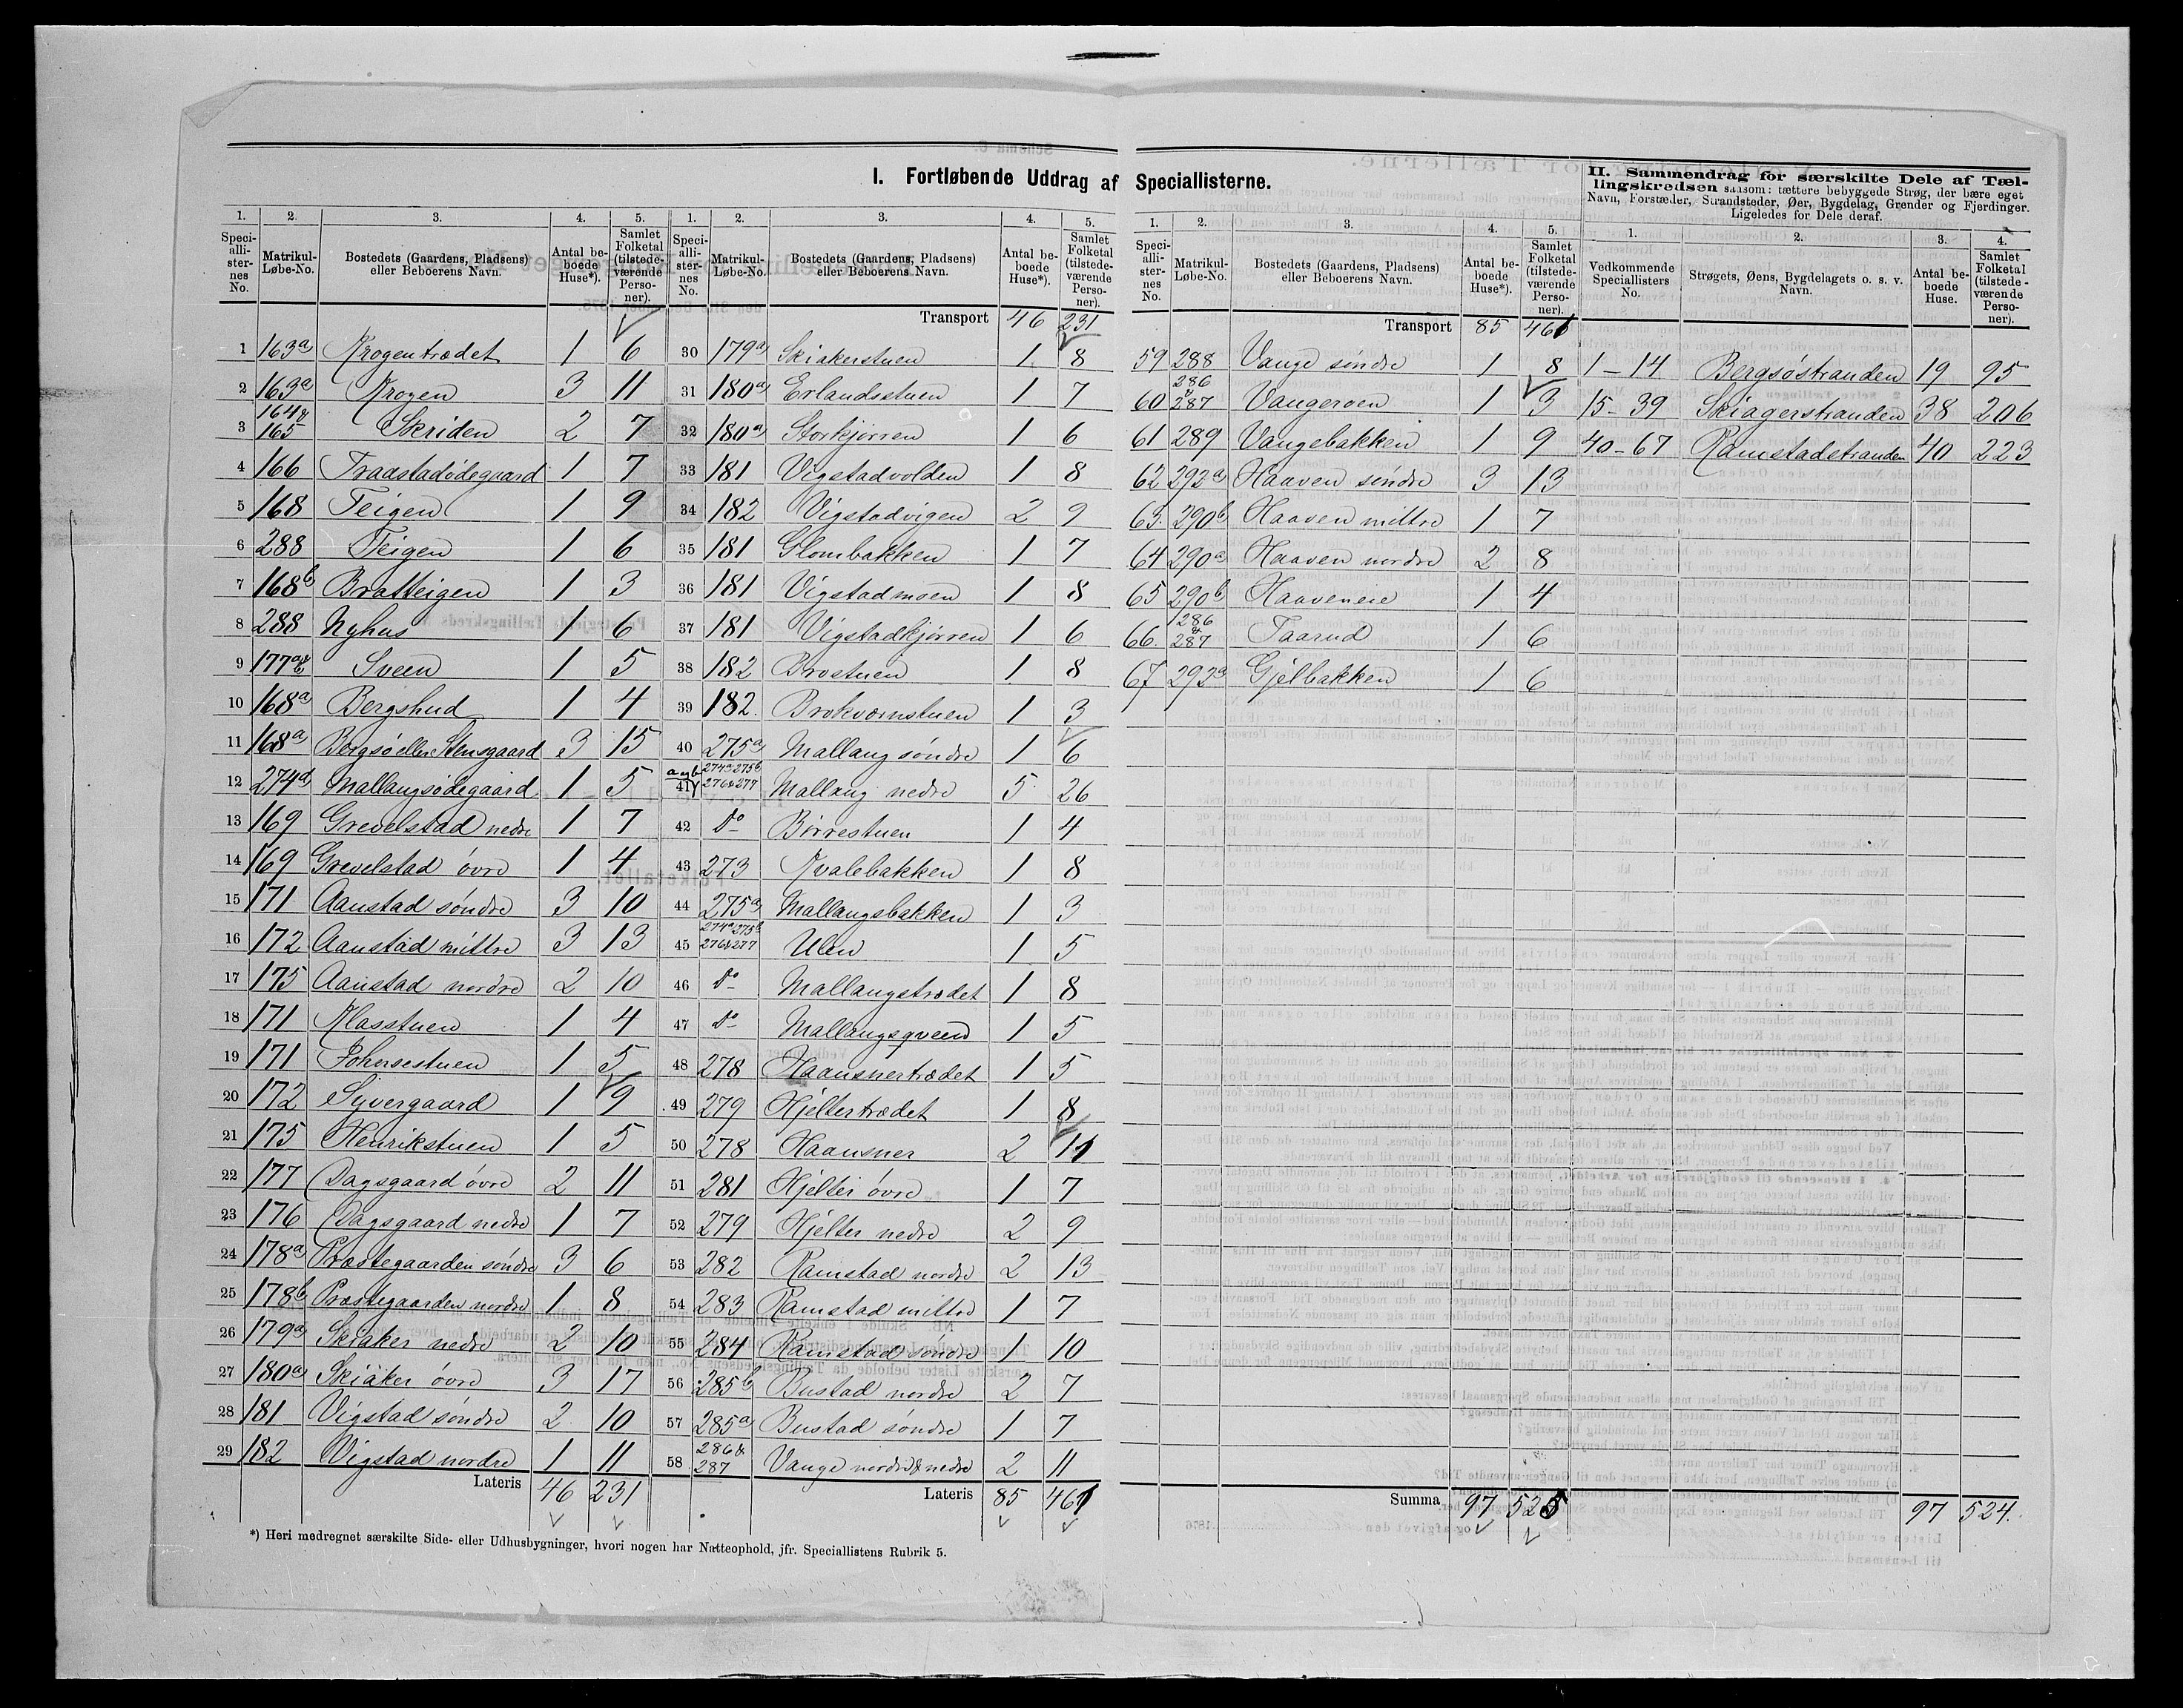 I. Fortløbende Uddrag af Speciallisterne.
1. 2. 3. 4. 5.
Speciallisternes No. Matrikul-Løbe-No. Bostedets (Gaardens, Pladsens) eller Beboerens Navn. Antal beboede Huse*). Samlet Folketal (tilstedeværende Personer).
1 163a Krogentrædet 1 6
2 163a Krogen 3 11
3 164 & 165 Skriden 2 7
4 166 Traastadødegaard 1 7
5 168 Teigen 1 9
6 288 Teigen 1 6
7 168b Bratteigen 1 3
8 288 Nyhus 1 6
9 177a&b Sveen 1 5
10 168a Bergshud 1 4
11 168a Bergsø eller Stensgaard 3 15
12 274a Mallangsødegaard 1 5
13 169 Grevelstad nedre 1 7
14 169 Grevelstad øvre 1 4
15 171 Aanstad søndre 3 10
16 172 Aanstad mittre 3 13
17 175 Aanstad nordre 2 10
18 171 Klasstuen 1 4
19 171 Johnsestuen 1 5
20 172 Syvergaard 1 9
21 175 Henrikstuen 1 5
22 177 Dagsgaard øvre 2 11
23 176 Dagsgaard nedre 1 7
24 178a Præstegaarden søndre 3 6
25 178b Præstegaarden nordre 1 8
26 179a Skiaker nedre 2 10
27 180a Skiaker øvre 3 17
28 181 Vigstad søndre 2 10
29 182 Vigstad nordre 1 11
Lateris 46 231
1. 2. 3. 4. 5.
Speciallisternes No. Matrikul-Løbe-No. Bostedets (Gaardens, Pladsens) eller Beboerens Navn. Antal beboede Huse*). Samlet Folketal (tilstedeværende Personer).
Transport 46 231
30 179a Skiakerstuen 1 8
31 180a Erlandsstuen 1 7
32 180a Storkjørren 1 6
33 181 Vigstadvolden 1 8
34 182 Vigstadvigen 2 9
35 181 Glombakken 1 7
36 181 Vigstadmoen 1 8
37 181 Vigstadkjørren 1 6
38 182 Brostuen 1 8
39 182. Brokværnstuen 1 3
40 275a Mallang søndre 1 6
41 a og b 274a 275b 276 & 277 Mallang nedre 5 26
42 do Børrestuen 1 4
43 273 Kvalebakken 1 8
44 275a Mallangsbakken 1 3
45 274a 275b 276 & 277 Ulen 1 5
46 do Mallangstrædet 1 8
47 do Mallangsqveen 1 5
48 278 Haansnertrædet 1 5
49 279 Hjeltertrædet 1 8
50 278 Haansner 2 11
51 281 Hjelter øvre 1 7
52 279 Hjelter nedre 2 9
53 282 Ramstad nordre 2 13
54 283 Ramstad mittre 1 7
55 284 Ramstad søndre 1 10
56 285b Bustad nordre 2 7
57 285a Bustad søndre 1 7
58 286 & 287 Vange nordre & nedre 2 11
Lateris 85 461
1. 2. 3. 4. 5.
Speciallisternes No. Matrikul-Løbe-No. Bostedets (Gaardens, Pladsens) eller Beboerens Navn. Antal beboede Huse*). Samlet Folketal (tilstedeværende Personer).
Transport 85 461
59 288 Vange søndre 1 8
60 286 & 287 Vangeroen 1 3
61 289 Vangebakken 1 9
62 292a Haaven søndre 3 13
63. 290b Haaven mittre 1 7
64 290a Haaven nordre 2 8
65 290b Haaveneie 1 4
66. 286 & 287 Taarud 1 6
67 292a Gjelbakken 1 6
Summa 97 525
II. Sammendrag for særskilte Dele af Tællingskredsen saasom: tættere bebyggede Strøg, der bære eget Navn, Forstæder, Strandsteder, Øer, Bygdelag, Grender og Fjerdinger. Ligeledes for Dele deraf.
1. 2. 3. 4.
Vedkommende Speciallisters No. Strøgets, Øens, Bygdelagets o. s. v. Navn. Antal beboede Huse. Samlet Folketal (tilstedeværende Personer).
1-14 Bergsøstranden 19 95
15-39 Skiagerstranden 38 206
40-67 Ramstadstranden 40 223
97 524.
*) Heri medregnet særskilte Side- eller Udhusbygninger, hvori nogen har Natteophold, jfr. Speciallistens Rubrik 5.